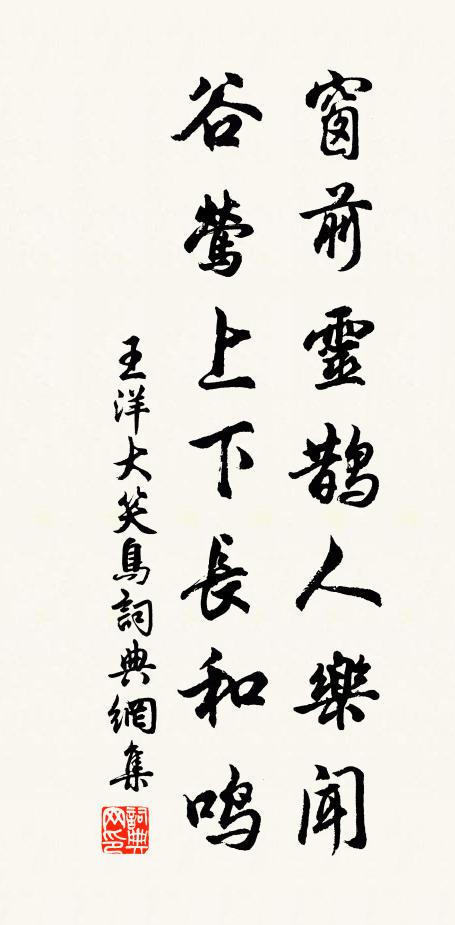 窗前靈鵲人樂闻
谷鶯上下長和鳴
王洋大笑鳥詞典網集
詞典网印